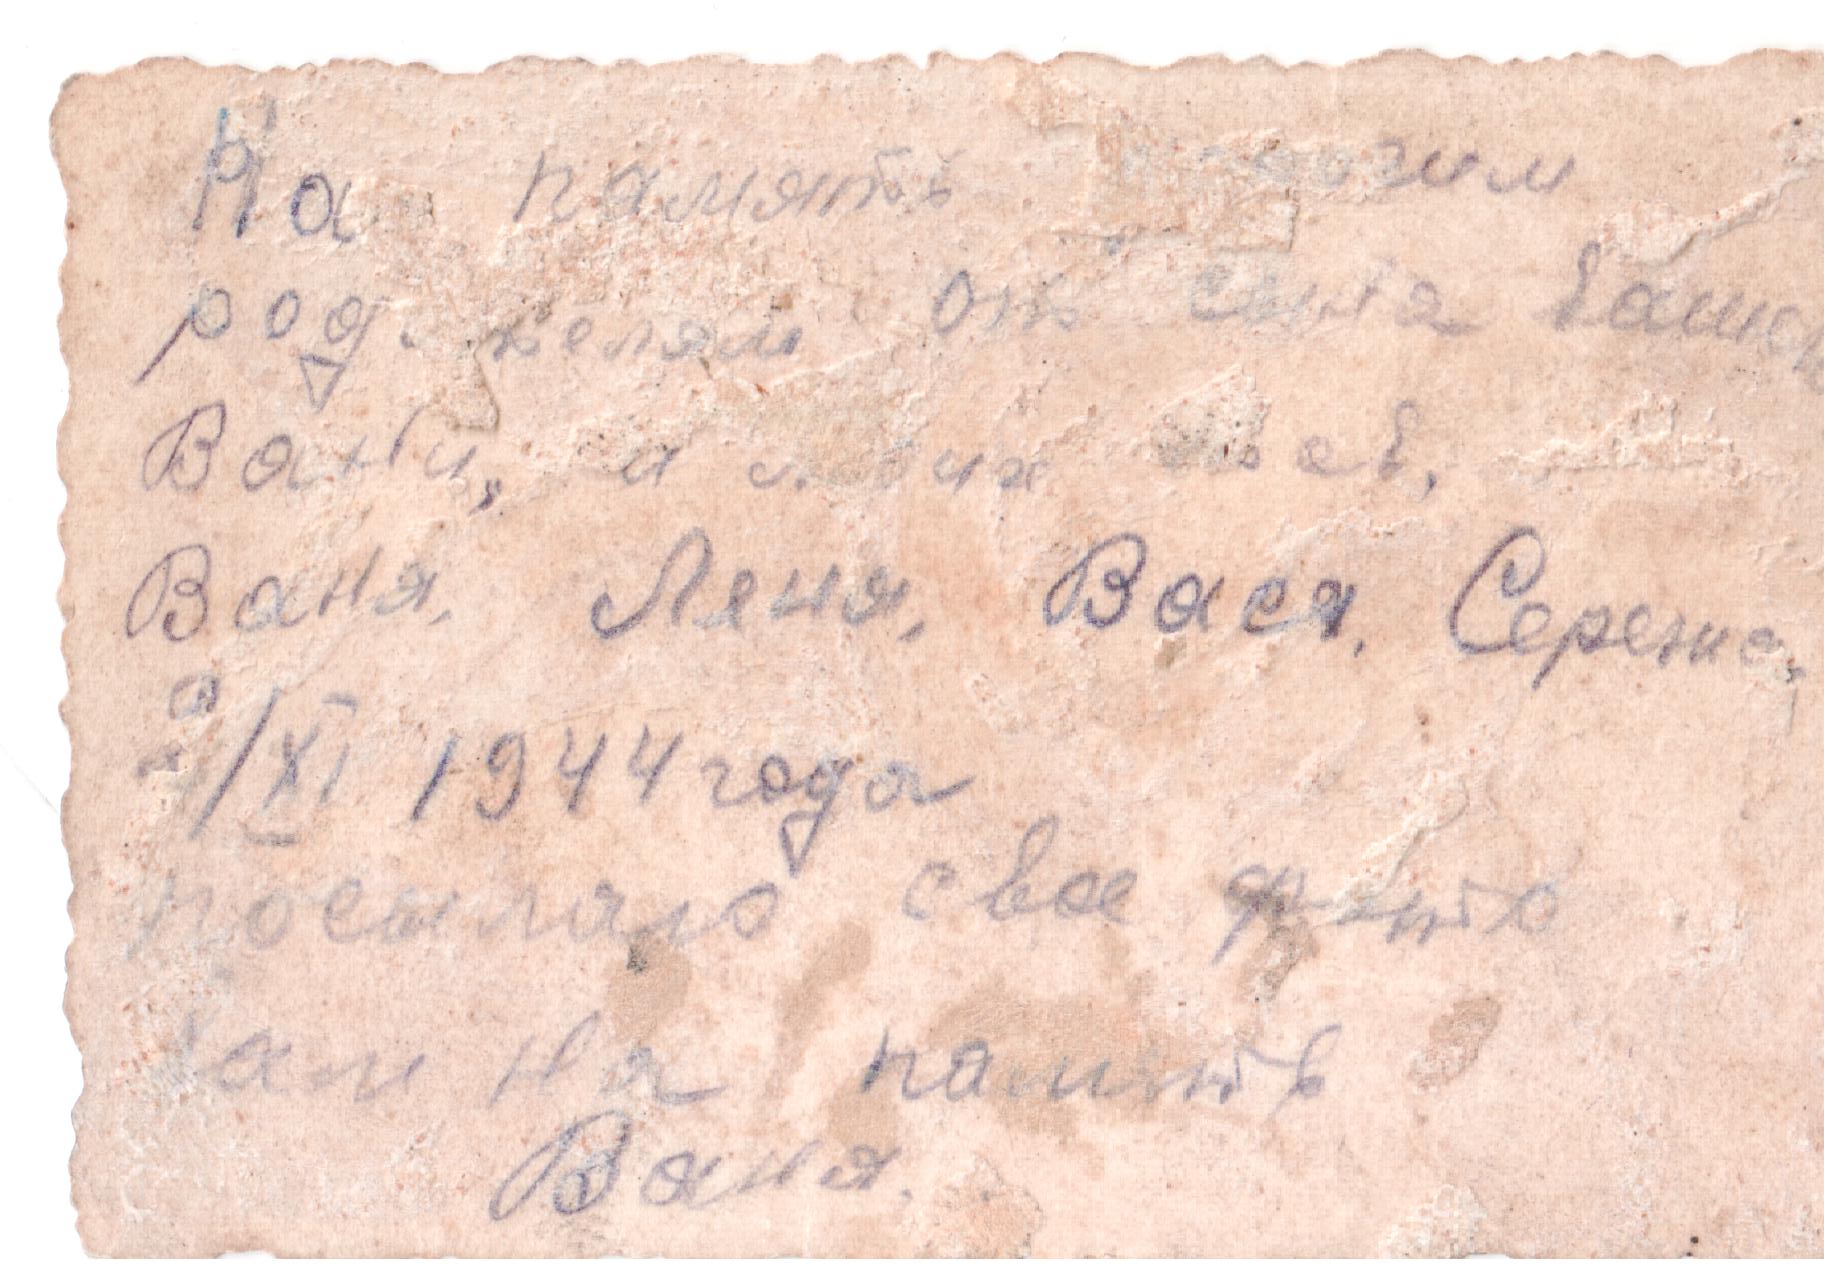 На память
родителям от сына вашего
Вани, а
Ваня, Леня, Вася, Сережа,
/XI 1944 года
посылаю свое фото
вам на память
Ваня.